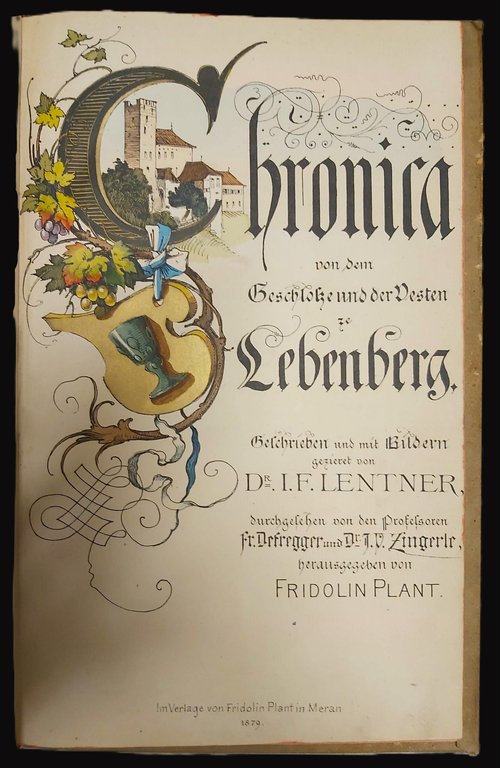 Chronica
von dem
Geschloße und der Vesten
ze
Lebenberg.
Geschrieben und mit Bildern
gezieret von
Dr. I. F. LENTNER,
durchgesehen von den Professoren
Fr. Defregger und Dr. I. V. Zingerle,
herausgegeben von
FRIDOLIN PLANT.
Im Verlage von Fridolin Plant in Meran
1879.